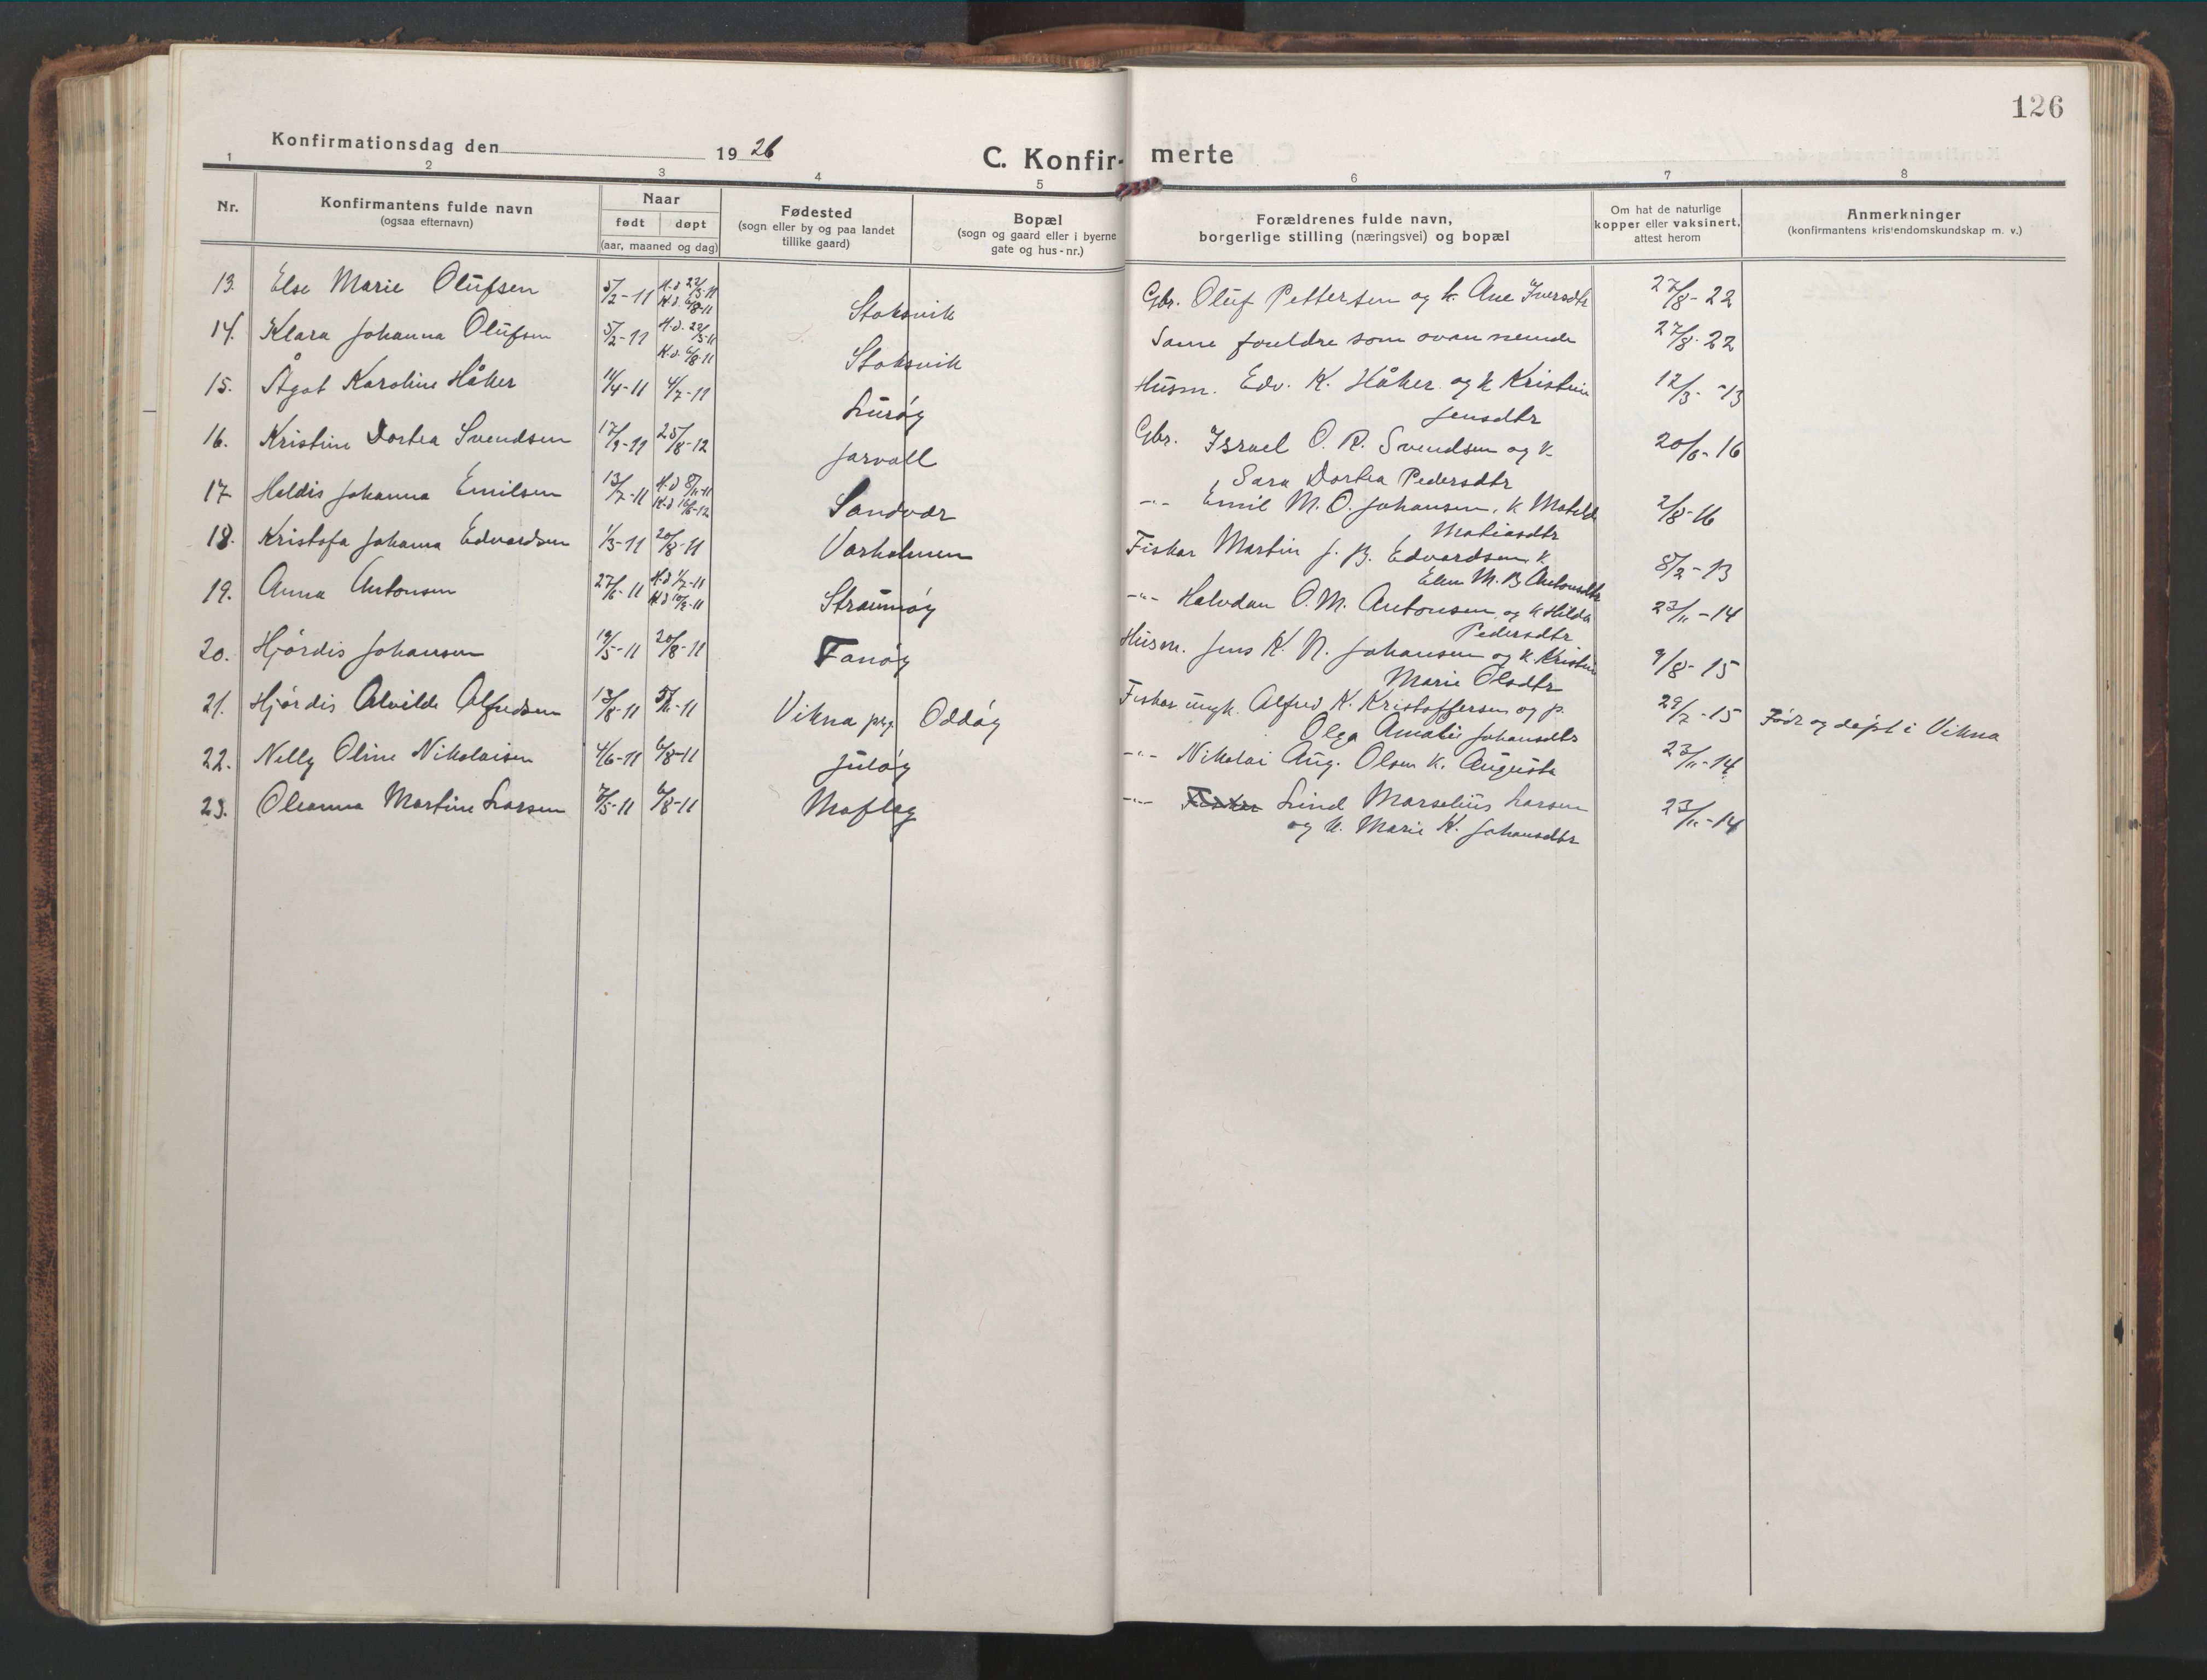 126
Konfirmationsdag den 1926
C. Konfirmerte
1 2 3 4 5 6 7 8
Nr.
Konfirmantens fulde navn
(ogsaa efternavn)
Naar
født døpt
(aar, maaned og dag)
Fødested
(sogn eller by og paa landet
tillike gaard)
Bopæl
(sogn og gaard eller i byerne
gate og hus-nr.)
Forældrenes fulde navn,
borgerlige stilling (næringsvei) og bopæl
Om hat de naturlige
kopper eller vaksinert,
attest herom
Anmerkninger
(konfirmantens kristendomskundskap m. v.)
13. Else Marie Olufsen 5/2-11 H.d. 22/3-11 Stoksvik Gbr. Oluf Pettersen og k. Ane Iversdtr 27/8-22
K.d. 6/8-11
14. Klara Johanna Olufsen 5/2-11 H.d. 22/3-11 Stoksvik Same foreldre som ovan nemde 27/8-22
K.d. 6/8-11
15. Ågot Karoline Håker 11/4-11 4/7-11 Lurøy Husm. Edv. K. Håker og k Kristine 12/3-13
Jensdtr
16. Kristine Dortea Svendsen 17/9-11 25/8-12 Jarvoll Gbr. Israel O. R. Svendsen og k. 20/6-16
Sara Dortea Pedersdtr
17. Haldis Johanna Emilsen 13/7-11 H.d 8/11-11 Sandvær -"- Emil M. O. Johansen, k Matilde 2/8-16
Matiasdtr
18. Kristofa Johanna Edvardsen 1/3-11 20/8-11 Varholmen Fiskar Martin J. B. Edvardsen k. 8/2-13
Elen M. B Antonsdtr
19. Anna Antonsen 27/6-11 H.d 1/7-11 Straumøy -"- Halvdan O. M. Antonsen og k Hilda 23/11-14
K.d 10/9-11 Pedersdtr
20. Hjørdis Johansen 19/5-11 20/8-11 Fanøy Husm. Jens K. N. Johansen og k. Kristine 9/8-15
Marie Olsdtr
21. Hjørdis Alvilde Alfredsen 13/8-11 5/11-11 Vikna prg. Oddøy Fiskar ungk. Alfred K. Kristoffersen og p. 29/7-15 Født og døpt i Vikna
Olga Amalie Johansdtr
22. Nelly Oline Nikolaisen 4/6-11 6/8-11 Juløy -"- Nikolai Aug. Olsen k. Augusta 23/11-14
23. Oleanna Martine Larsen 7/5-11 6/8-11 Moflag -"- Fiskar Lind Marselius Larsen 23/11-14
og k. Marie K. Johansdtr